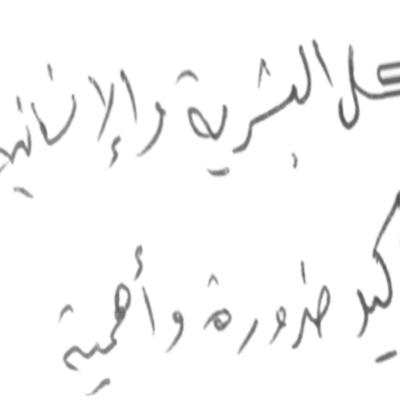 كل البشرية والإنسانية
ضرورة وأهمية